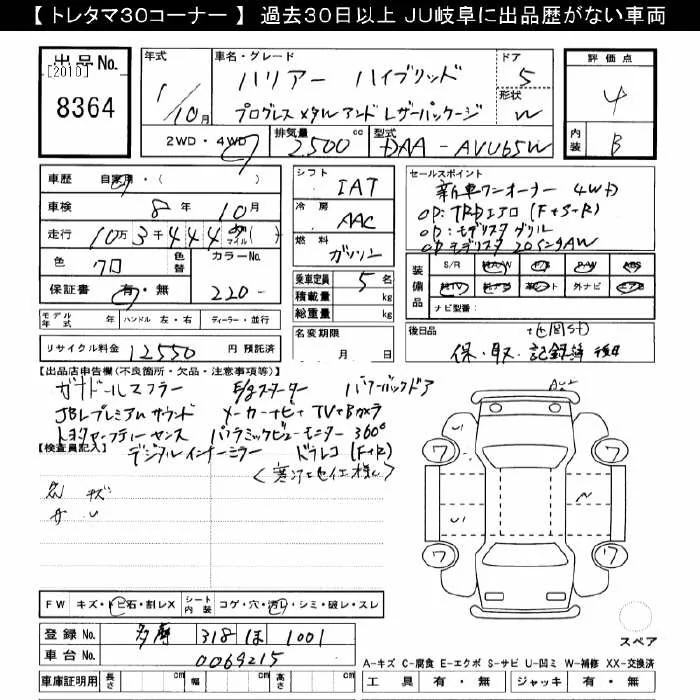 【 トレタマ30コーナー 】 過去30日以上 JU岐阜に出品歴がない車両
出品No. [2010] 8364
年式 1/10月
車名・グレード ハリアー ハイブリッド
プログレス メタル アンド レザーパッケージ
ドア 5
形状 W
評価点 4
内装 B
2WD・4WD 排気量 2500 cc 型式 DAA-AVU65W
車歴 自家用・( )
車検 8年 10月
走行 10万3千444 km マイル ( )
色 クロ 色替 カラーNo. 220
保証書 有・無
モデル年式 年 ハンドル 左・右 ディーラー・並行
リサイクル料金 12550 円 預託済
シフト IAT
冷房 AAC
燃料 ガソリン
乗車定員 5 名
積載量 kg
総重量 kg
名変期限 月 日
セールスポイント 新車ワンオーナー 4WD
OP:TRDエアロ(F+S+R)
OP:モデリスタグリル
OPモデリスタ20インチAW
装備品 S/R 外ナビ
ナビ型番:
後日品
保・取・記録簿 後日
【出品店申告欄(不良箇所・欠品・注意事項等)】
ガナドールマフラー E/gスターター パワーバックドア
JBLプレミアムサウンド メーカーナビ+TV+Bカメラ
トヨタセーフティーセンス パノラミックビューモニター360°
【検査員記入】 デジタルインナーミラー ドラレコ(F+R)
キズ
U
FW キズ・トビ石・割レX シート内装 コゲ・穴・汚レ・シミ・破レ・スレ
登録No. 多摩 318 ほ 1001
車台No. 0069215
車庫証明用 長さ cm 幅 cm 高さ cm
U
ワ ワ
ワ ワ
スペア
A-キズ C-腐食 E-エクボ S-サビ U-凹ミ W-補修 XX-交換済
工具 有・無 ジャッキ 有・無